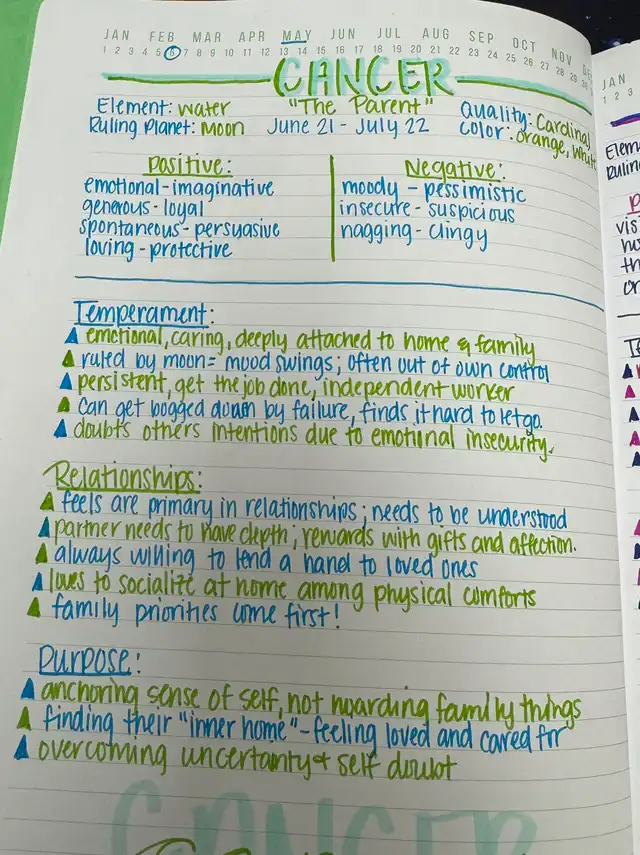 JAN FEB MAR APR MAY JUN JUL AUG SEP OCT NOV
1 2 3 4 5 6 7 8 9 10 11 12 13 14 15 16 17 18 19 20 21 22 23 24 25 26 27 28 29
CANCER
"The Parent"
Element: water
Quality: Cardinal
Ruling Planet: Moon
June 21 - July 22
color: orange, white
Positive:
emotional - imaginative
generous - loyal
spontaneous - persuasive
loving - protective
Negative:
moody - pessimistic
insecure - suspicious
nagging - clingy
Temperament:
emotional, caring, deeply attached to home & family
ruled by moon = mood swings; often out of own control
persistent, get the job done, independent worker
can get bogged down by failure, finds it hard to let go.
doubts others intentions due to emotional insecurity.
Relationships:
feels are primary in relationships; needs to be understood
partner needs to have depth; rewards with gifts and affection.
always willing to lend a hand to loved ones
loves to socialize at home among physical comforts
family priorities come first!
Purpose:
anchoring sense of self, not hoarding family things
finding their "inner home" - feeling loved and cared for
overcoming uncertainty & self doubt
CANCER
JAN
1 2 3